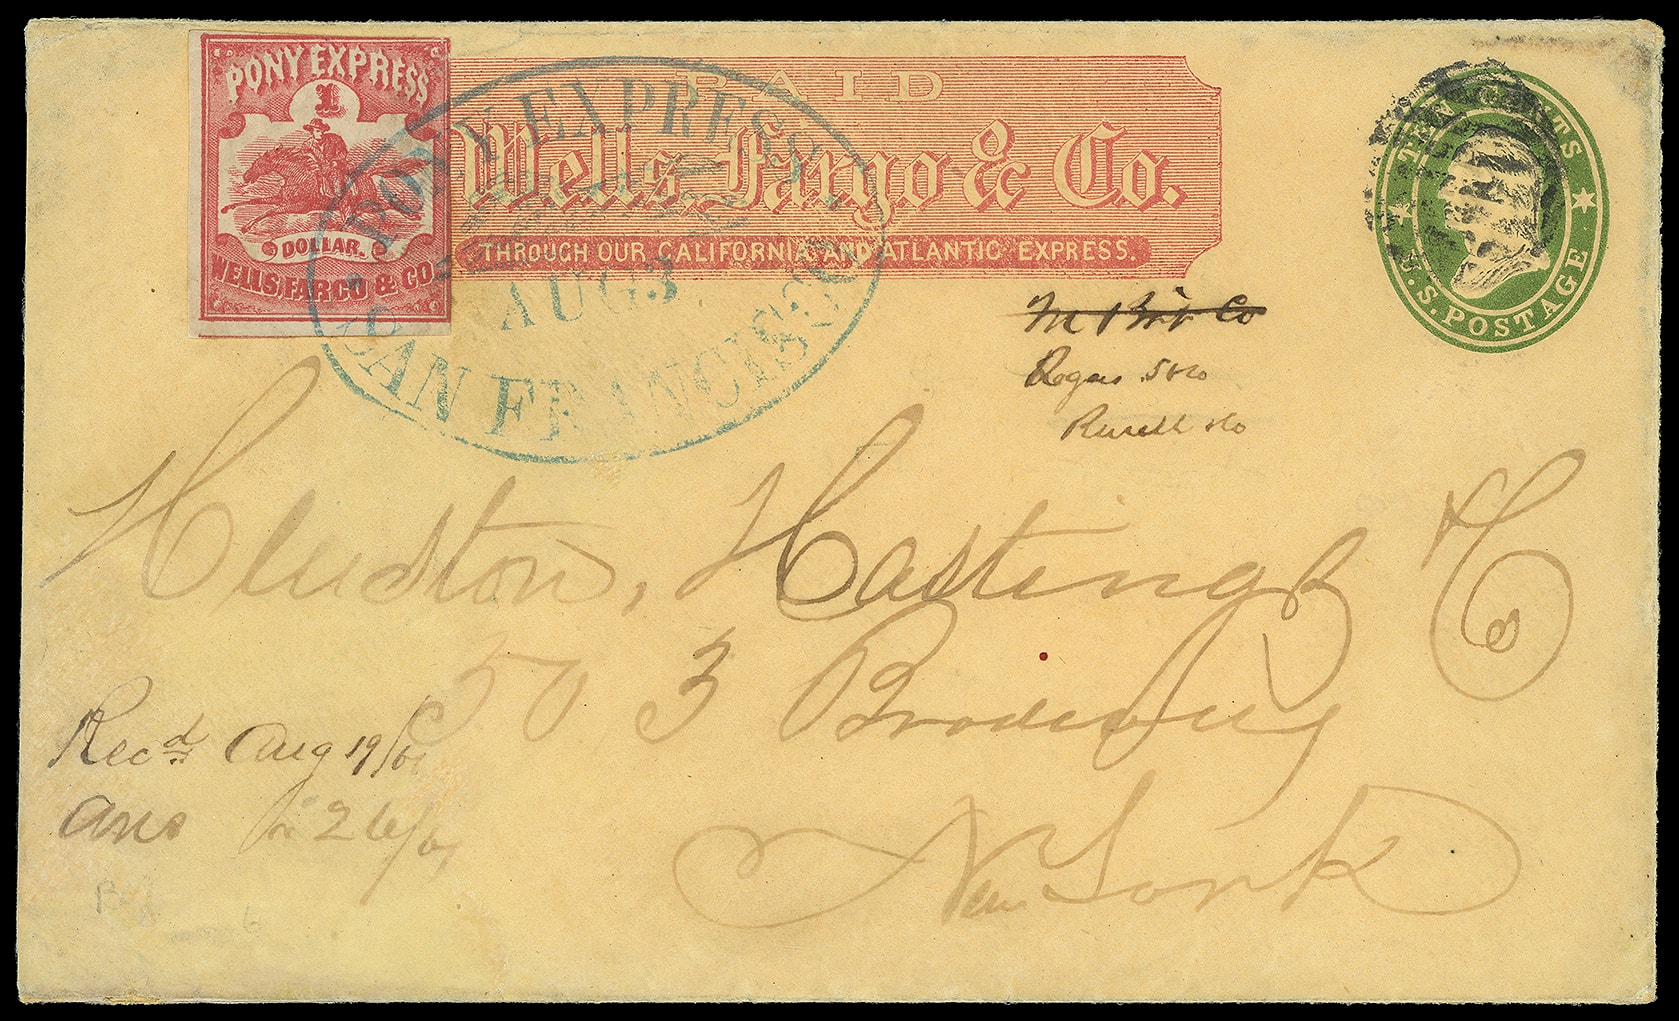 PONY EXPRESS
1
DOLLAR.
WELLS, FARGO & CO.
PAID
Wells Fargo & Co.
THROUGH OUR CALIFORNIA AND ATLANTIC EXPRESS.
PONY EXPRESS
AUG 3
SAN FRANCISCO
TEN CENTS
U.S. POSTAGE
Co
Rogers
Russell
Huston, Hastings & Co
503 Broadway
New York
Recd Aug 19/61
Ans 26/61
6